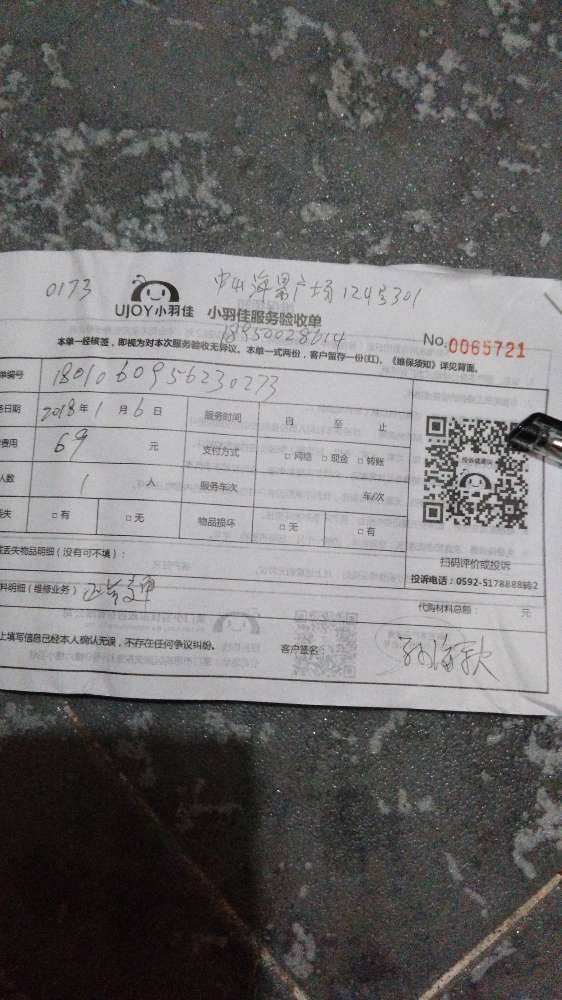 0173
124号301
UJOY小羽佳 小羽佳服务验收单
18950028614
No.0065721
本单一经核签，即视为对本次服务验收无异议。本单一式两份，客户留存一份(红)。《维保须知》详见背面。
单编号 1801060956230273
日期 2018年1月6日 服务时间 自 至 止
费用 69 元 支付方式 □网络 □现金 □转账
人数 1 人 服务车次 车/次
失 □有 □无 物品损坏 □无 □有
扫码评价或投诉
丢失物品明细（没有可不填）：
投诉电话：0592-5178888转2
料明细（维修业务）
代购材料总额： 元
上填写信息已经本人确认无误，不存在任何争议纠纷。 客户签名：